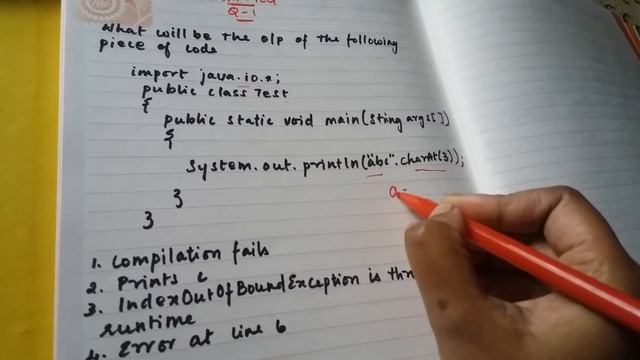 Q-1
What will be the o/p of the following
piece of code
import java.io.*;
public class Test
{
public static void main(Sting args[])
{
System.out.println("abc".charAt(3));
}
}
1. Compilation fails
2. Prints c
3. IndexOutOfBoundException is thr
runtime
4. Error at line 6